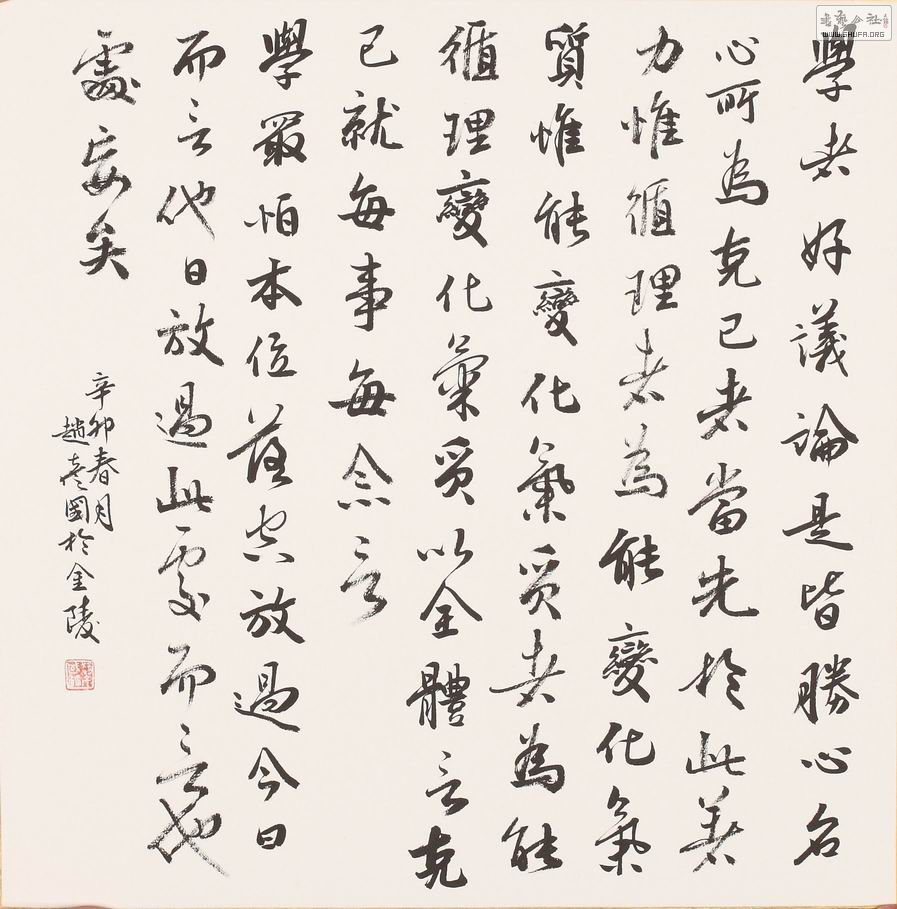 學者好議論是皆勝心名
心所為克己者當先於此著
力惟循理者為能變化氣
質惟能變化氣質者為能
循理變化氣質以全體言克
己就每事每念言
學最怕本位落空放過今日
而言他日放過此處而言他
處妄矣
辛卯春月
趙 國於金陵
WWW.SHUFA.ORG